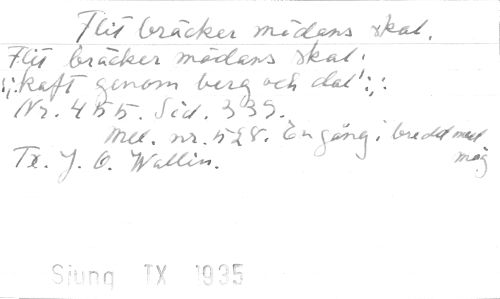 Flit bräcker mödans skal.
Flit bräcker mödans skal.
:,: kaft genom berg och dal :,:
Nr. 455. Sid. 339.
Mel. nr. 528. En gång i bredd med
mig
Tx. J. O. Wallin.
Sjung TX 1935